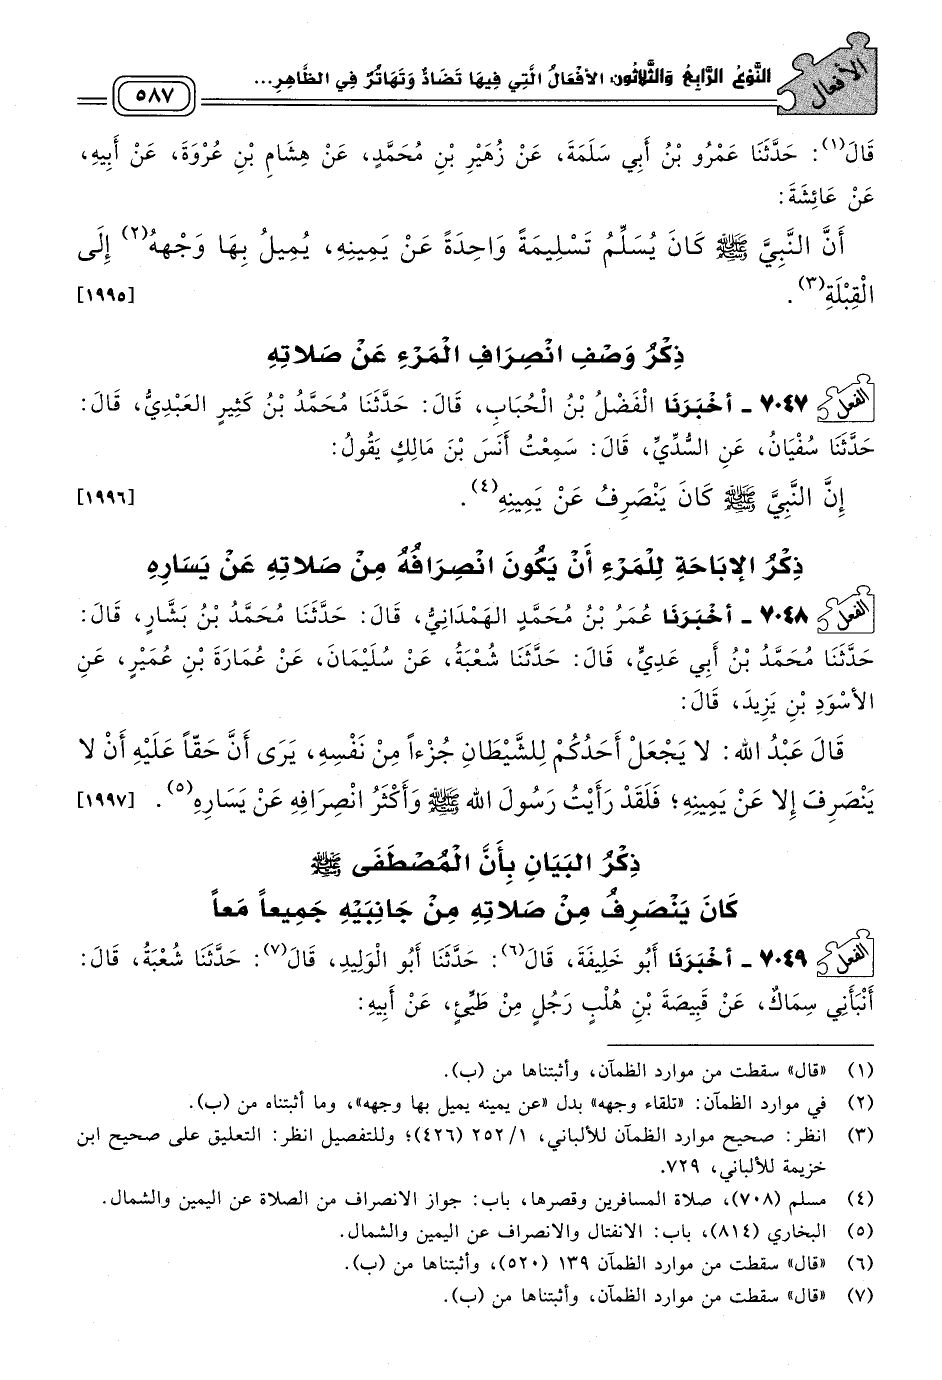 الأفعال
النَّوْعُ الرَّابِعُ وَالثَّلاثُونَ: الأَفْعَالُ الَّتِي فِيهَا تَضَادٌّ وَتَهَاتُرٌ فِي الظَّاهِرِ...
٥٨٧
قَالَ(١): حَدَّثَنَا عَمْرُو بْنُ أَبِي سَلَمَةَ، عَنْ زُهَيْرِ بْنِ مُحَمَّدٍ، عَنْ هِشَامِ بْنِ عُرْوَةَ، عَنْ أَبِيهِ،
عَنْ عَائِشَةَ:
أَنَّ النَّبِيَّ ﷺ كَانَ يُسَلِّمُ تَسْلِيمَةً وَاحِدَةً عَنْ يَمِينِهِ، يُمِيلُ بِهَا وَجْهَهُ(٢) إِلَى
القِبْلَةِ(٣). [١٩٩٥]
ذِكْرُ وَصْفِ انْصِرَافِ الْمَرْءِ عَنْ صَلاتِهِ
الفعل ٧٠٤٧ ـ أَخْبَرَنَا الْفَضْلُ بْنُ الْحُبَابِ، قَالَ: حَدَّثَنَا مُحَمَّدُ بْنُ كَثِيرٍ العَبْدِيُّ، قَالَ:
حَدَّثَنَا سُفْيَانُ، عَنِ السُّدِّيِّ، قَالَ: سَمِعْتُ أَنَسَ بْنَ مَالِكٍ يَقُولُ:
إِنَّ النَّبِيَّ ﷺ كَانَ يَنْصَرِفُ عَنْ يَمِينِهِ(٤). [١٩٩٦]
ذِكْرُ الإِبَاحَةِ لِلْمَرْءِ أَنْ يَكُونَ انْصِرَافُهُ مِنْ صَلاتِهِ عَنْ يَسَارِهِ
الفعل ٧٠٤٨ ـ أَخْبَرَنَا عُمَرُ بْنُ مُحَمَّدٍ الهَمْدَانِيُّ، قَالَ: حَدَّثَنَا مُحَمَّدُ بْنُ بَشَّارٍ، قَالَ:
حَدَّثَنَا مُحَمَّدُ بْنُ أَبِي عَدِيٍّ، قَالَ: حَدَّثَنَا شُعْبَةُ، عَنْ سُلَيْمَانَ، عَنْ عُمَارَةَ بْنِ عُمَيْرٍ، عَنِ
الأَسْوَدِ بْنِ يَزِيدَ، قَالَ:
قَالَ عَبْدُ الله: لا يَجْعَلْ أَحَدُكُمْ لِلشَّيْطَانِ جُزْءاً مِنْ نَفْسِهِ، يَرَى أَنَّ حَقّاً عَلَيْهِ أَنْ لا
يَنْصَرِفَ إِلا عَنْ يَمِينِهِ؛ فَلَقَدْ رَأَيْتُ رَسُولَ الله ﷺ وَأَكْثَرُ انْصِرَافِهِ عَنْ يَسَارِهِ(٥). [١٩٩٧]
ذِكْرُ البَيَانِ بِأَنَّ الْمُصْطَفَى ﷺ
كَانَ يَنْصَرِفُ مِنْ صَلاتِهِ مِنْ جَانِبَيْهِ جَمِيعاً مَعاً
الفعل ٧٠٤٩ ـ أَخْبَرَنَا أَبُو خَلِيفَةَ، قَالَ(٦): حَدَّثَنَا أَبُو الْوَلِيدِ، قَالَ(٧): حَدَّثَنَا شُعْبَةُ، قَالَ:
أَنْبَأَنِي سِمَاكٌ، عَنْ قَبِيصَةَ بْنِ هُلْبٍ رَجُلٍ مِنْ طَيِّئٍ، عَنْ أَبِيهِ:
(١) «قال» سقطت من موارد الظمآن، وأثبتناها من (ب).
(٢) في موارد الظمآن: «تلقاء وجهه» بدل «عن يمينه يميل بها وجهه»، وما أثبتناه من (ب).
(٣) انظر: صحيح موارد الظمآن للألباني، ١/ ٢٥٢ (٤٢٦)؛ وللتفصيل انظر: التعليق على صحيح ابن
خزيمة للألباني، ٧٢٩.
(٤) مسلم (٧٠٨)، صلاة المسافرين وقصرها، باب: جواز الانصراف من الصلاة عن اليمين والشمال.
(٥) البخاري (٨١٤)، باب: الانفتال والانصراف عن اليمين والشمال.
(٦) «قال» سقطت من موارد الظمآن ١٣٩ (٥٢٠)، وأثبتناها من (ب).
(٧) «قال» سقطت من موارد الظمآن، وأثبتناها من (ب).